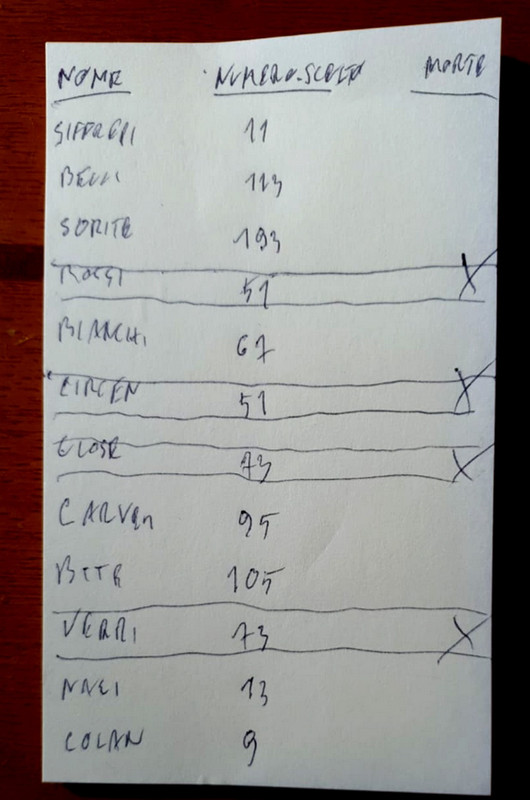 NOME NUMERO SCELTO MORTE
SIFFREDI 11
BELLI 113
SORITE 193
ROSSI 51 X
BIANCHI 67
CIRCEN 51 X
GLOSR 73 X
CARVEN 95
BTTR 105
VERRI 73 X
NAEI 13
COLAN 9